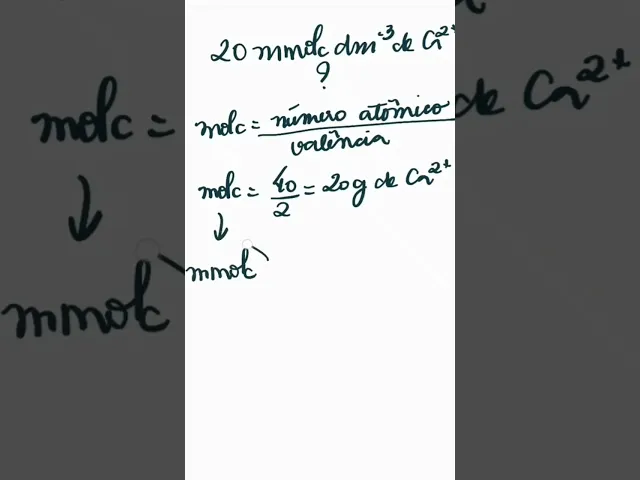 20 mmolc dm-3 de Ca2+
?
molc = número atômico
valência
molc = 40
2
= 20g de Ca2+
↓
mmolc
molc =
↓
mmolc
de Ca2+